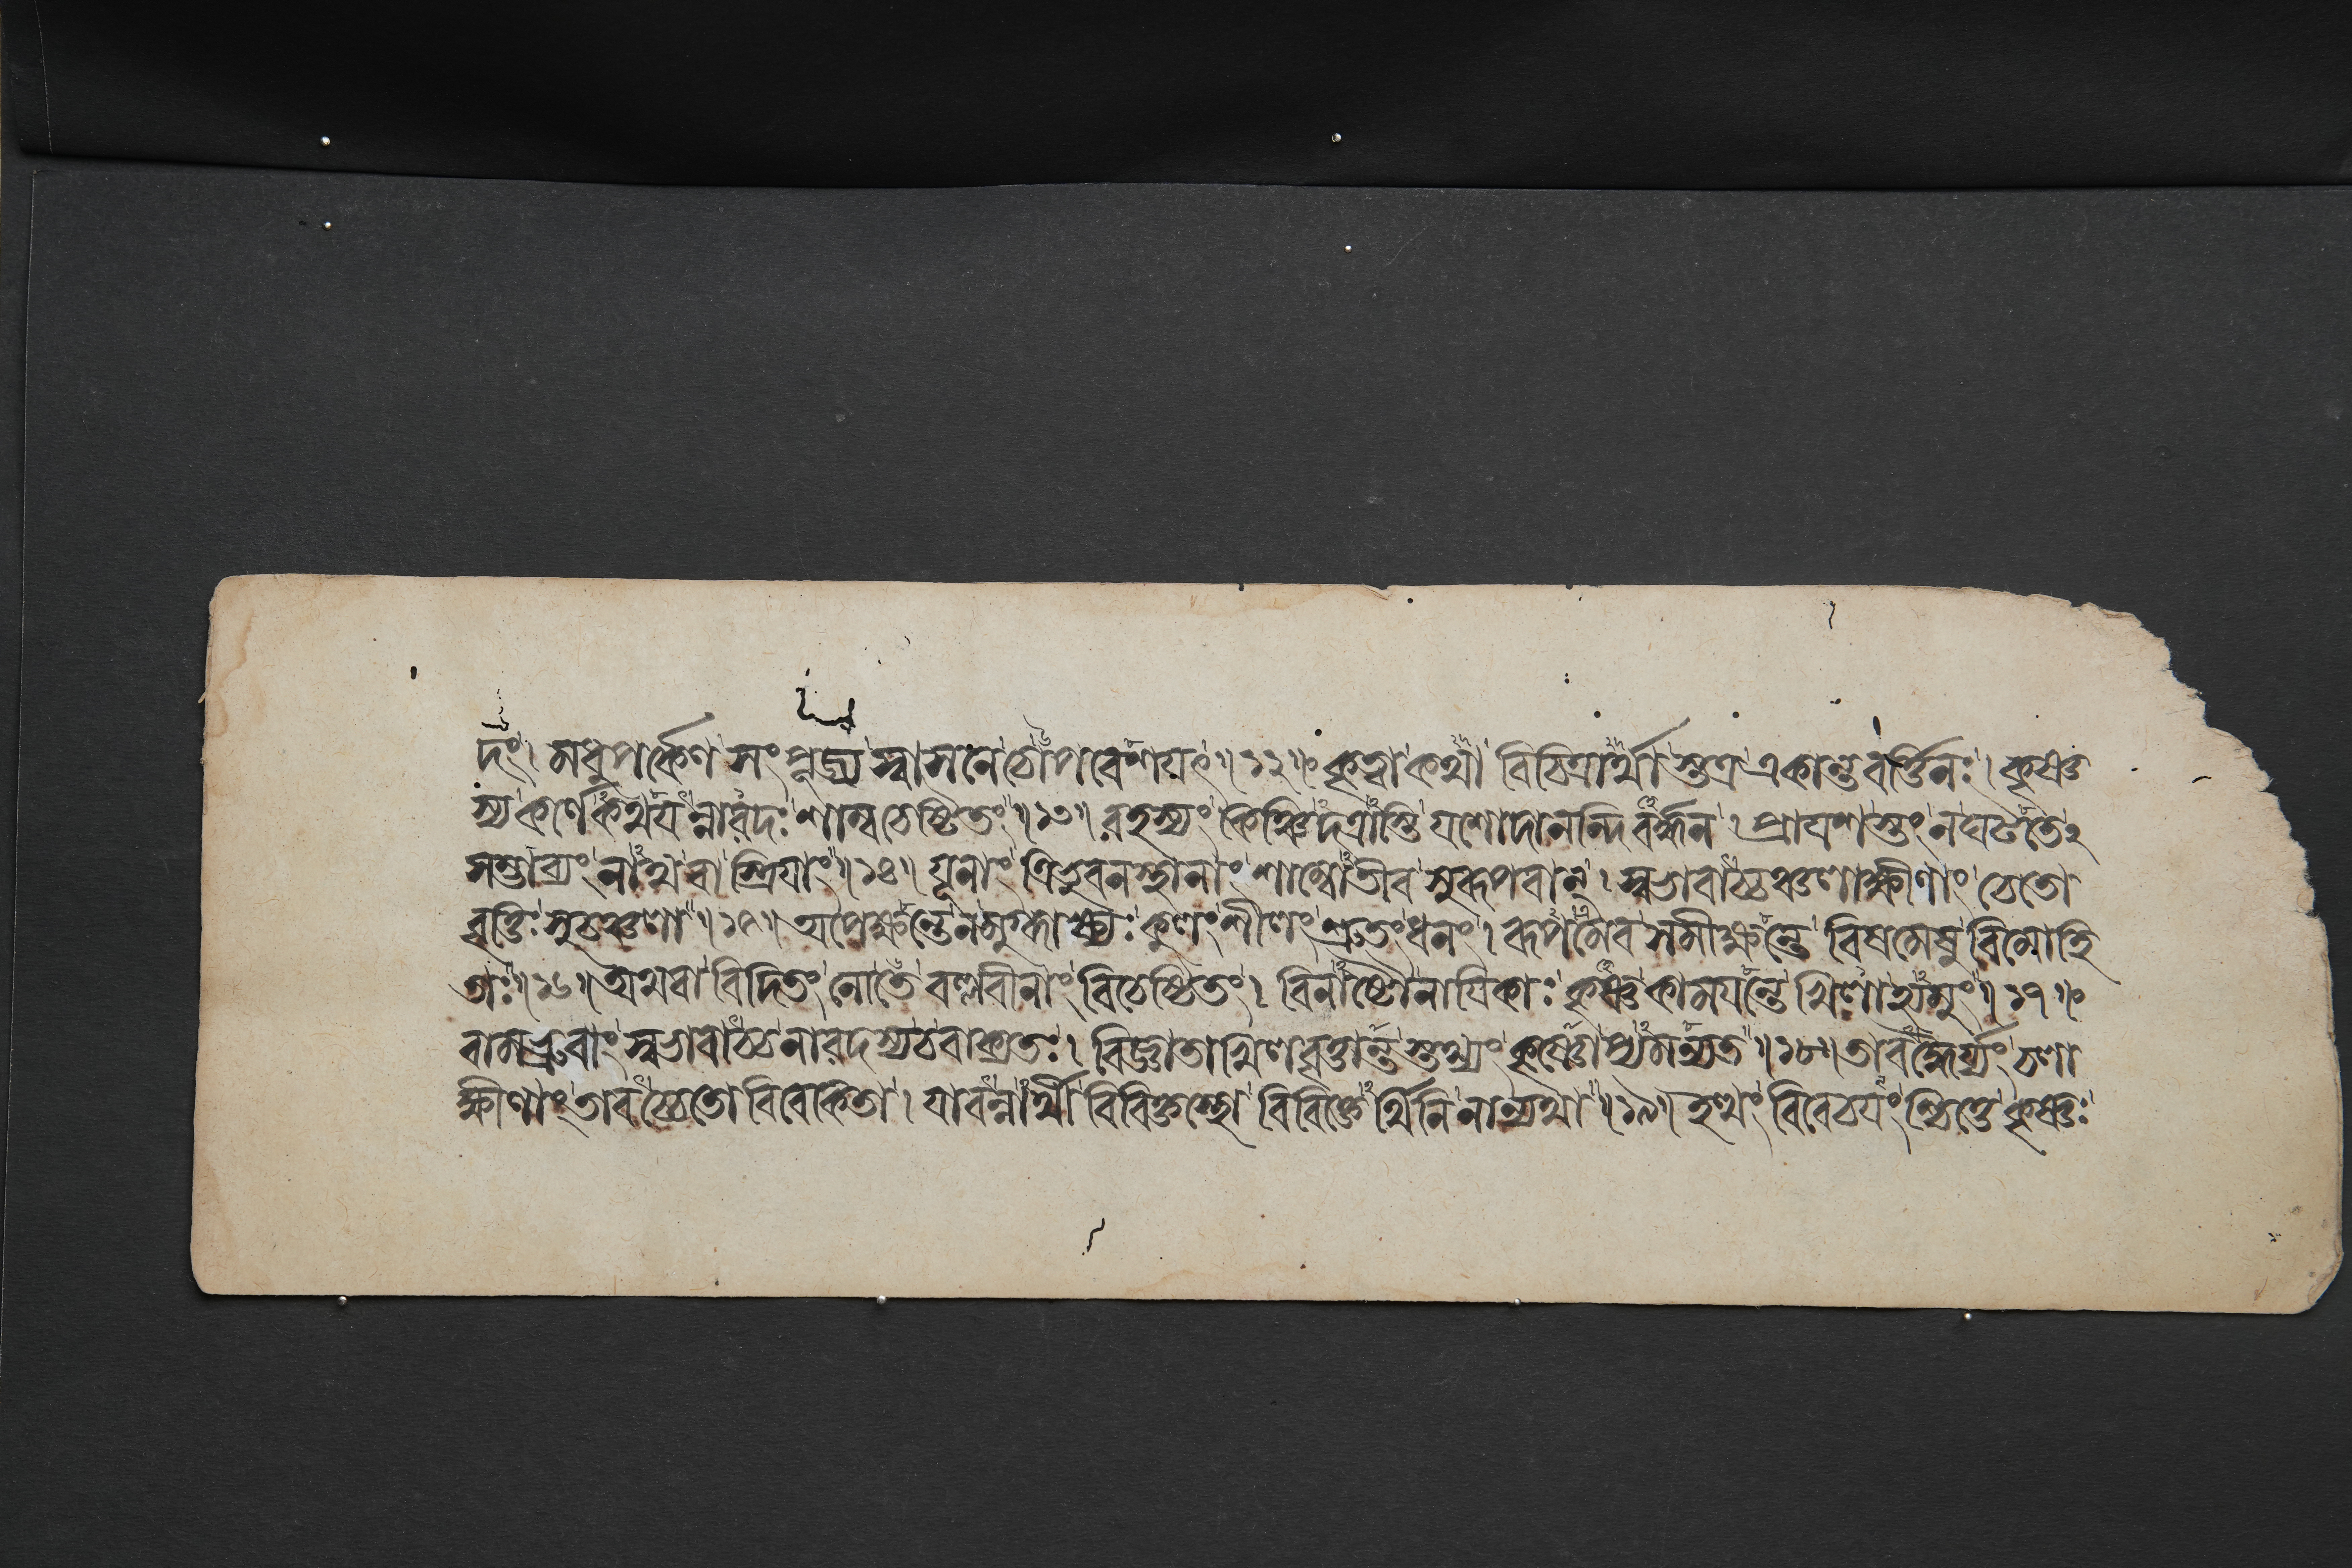 দং। মধুপর্কেণ সংপূজ্য স্বাসনে চোপবেশয়ৎ॥১২॥ কৃত্বা কথা বিচিত্রার্থাস্তত্র একান্তবর্ত্তিনঃ। কৃষ্ণ
স্য কর্ণে কথয়ন্নারদঃ শাম্বচেষ্টিতং॥১৩॥ রহস্যং কিঞ্চিদত্রাস্তি যশোদানন্দিবর্দ্ধন। প্রায়শস্তং ন ঘটতেঽ
সম্ভাব্যং নাথ বা স্ত্রিয়াং॥১৪॥ যূনাং ত্রিভুবনস্থানাং শাম্বোতীব সুরূপবান্। স্বভাবাচ্চঞ্চলাক্ষীণাং চেতো
বৃত্তিঃ সুচঞ্চলা॥১৫॥ অপেক্ষন্তে ন মুগ্ধাক্ষ্যঃ কুলং শীলং শ্রুতং ধনং। রূপমেব সমীক্ষন্তে বিষমেষু বিমোহি
তাঃ॥১৬॥ অথবা বিদিতং নো তে বল্লবীনাং বিচেষ্টিতং। বিনাষ্টৌ নায়িকাঃ কৃষ্ণ কাময়ন্তেখিলা হ্যমুং॥১৭॥
বামভ্রুবাং স্বভাবাচ্চ নারদস্য চ বাক্যতঃ। বিজ্ঞাতাখিলবৃত্তান্তস্তথ্যং কৃষ্ণোপ্যমন্যত॥১৮॥ তাবদ্ধৈর্য্যং চলা
ক্ষীণাং তাবচ্চেতো বিবেকিতা। যাবন্নার্থী বিবিক্তস্থো বিবিক্তের্থিনি নান্যথা॥১৯॥ ইত্থং বিবেচয়ংশ্চিত্তে কৃষ্ণঃ